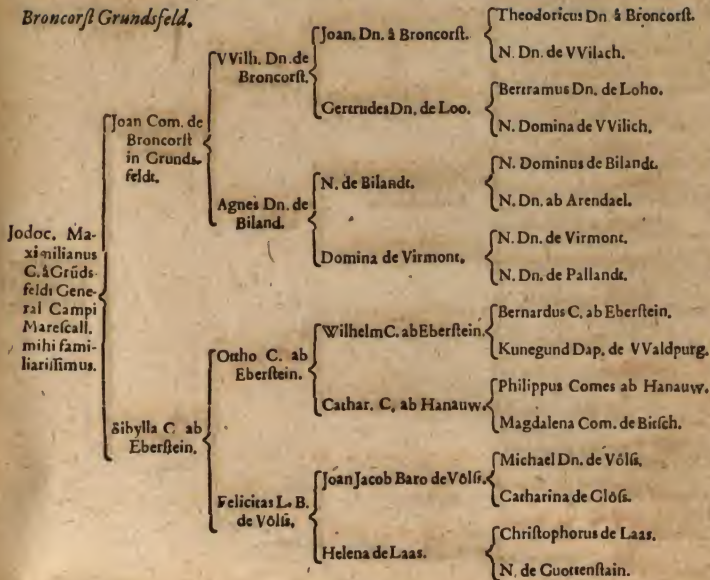 Broncorſt Grundsfeld.
Jodoc. Ma-
ximilianus
C. â Grũds-
feldt Gene-
ral Campi
Mareſcall.
mihi fami-
liariſſimus.
Joan Com. de
Broncorſt
in Grunds-
feldt.
Sibylla C. ab
Eberſtein.
VVilh. Dn. de
Broncorſt.
Agnes Dn. de
Biland.
Ottho C. ab
Eberſtein.
Felicitas L. B.
de Võlſs.
Joan. Dn. â Broncorſt.
Gertrudes Dn. de Loo.
N. de Bilandt.
Domina de Virmont.
Wilhelm C. ab Eberſtein.
Cathar. C. ab Hanauw.
Joan Jacob Baro de Võlſs.
Helena de Laas.
Theodoricus Dn â Broncorſt.
N. Dn. de VVilach.
Bertramus Dn. de Loho.
N. Domina de VVilich.
N. Dominus de Bilandt.
N. Dn. ab Arendael.
N. Dn. de Virmont.
N. Dn. de Pallandt.
Bernardus C. ab Eberſtein.
Kunegund Dap. de VValdpurg.
Philippus Comes ab Hanauw.
Magdalena Com. de Bitſch.
Michael Dn. de Võlſs.
Catharina de Glõſs.
Chriſtophorus de Laas.
N. de Guottenſtain.